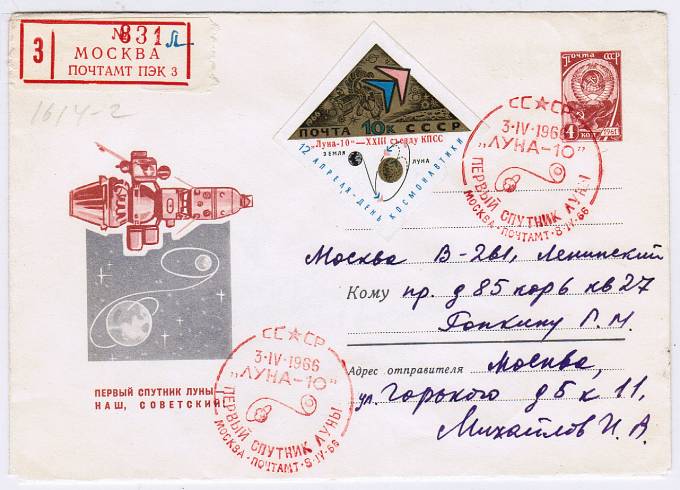 № 831 Л
З
МОСКВА
ПОЧТАМТ ПЭК 3
1614-2
1966
ПОЧТА 10К СССР
„Луна-10"—XXIII съезду КПСС
ЗЕМЛЯ ЛУНА
12 АПРЕЛЯ-ДЕНЬ КОСМОНАВТИКИ
Почта СССР
4 КОП. 1961
СС★СР
3·IV·1966
„ЛУНА-10"
ПЕРВЫЙ СПУТНИК ЛУНЫ
МОСКВА·ПОЧТАМТ·8·IV·66
Москва В-261, Ленинский
Кому пр. д 85 кор 6 кв 27
Попкину Г. М.
Адрес отправителя Москва,
ул. Горького д 5 к 11,
Михайлов И. А.
ПЕРВЫЙ СПУТНИК ЛУНЫ
НАШ, СОВЕТСКИЙ
СС★СР
3·IV·1966
„ЛУНА-10"
ПЕРВЫЙ СПУТНИК ЛУНЫ
МОСКВА·ПОЧТАМТ·8·IV·66